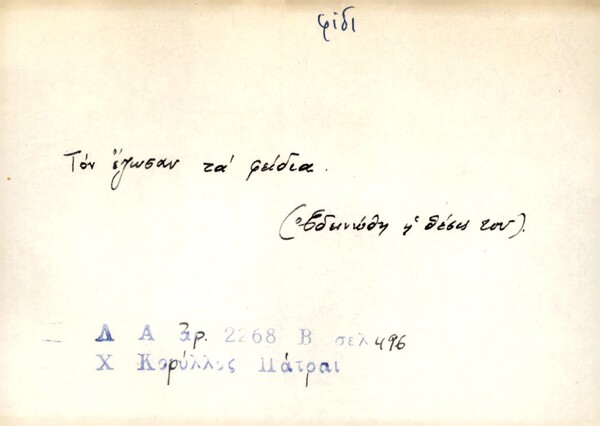 φίδι
Τόν ἔζωσαν τά φείδια.
(Ἐδεινώθη ἡ θέσις του).
Λ Α ἀρ. 2268 Β σελ 496
Χ Κορύλλος Πάτραι